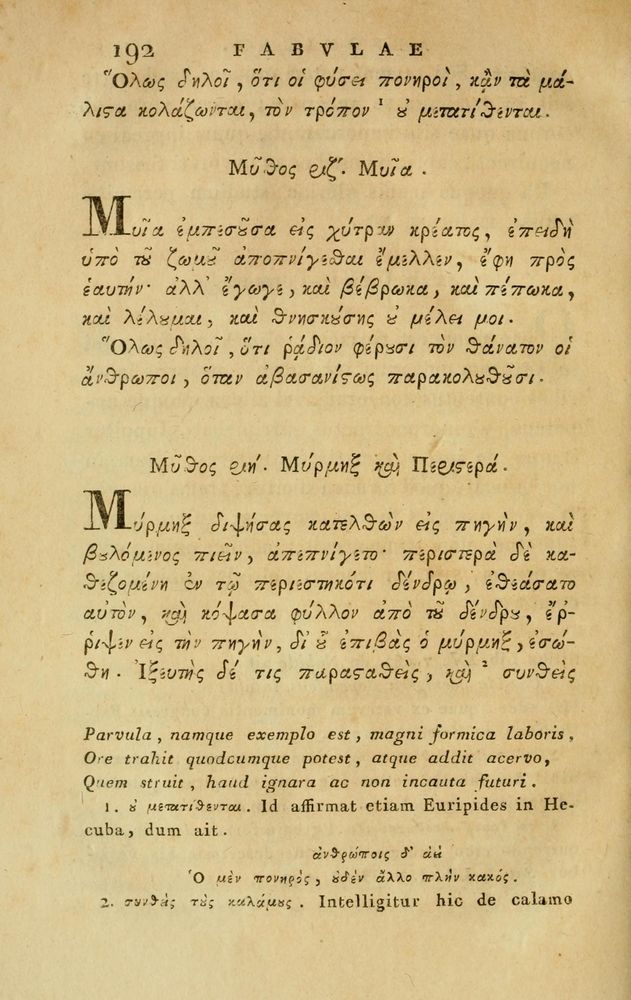 192 FABVLAE
Ὅλως δηλοῖ, ὅτι οἱ φύσει πονηροὶ, κἂν τὰ μά-
λιϛα κολάζωνται, τὸν τρόπον ¹ ȣ μετατίθενται.
Μῦθος ριζʹ. Μυῖα.
Μυῖα ἐμπεσοῦσα εἰς χύτραν κρέατος, ἐπειδὴ
ὑπὸ τοῦ ζωμοῦ ἀποπνίγεσθαι ἔμελλεν, ἔφη πρὸς
ἑαυτήν· ἀλλʼ ἔγωγε, καὶ βέβρωκα, καὶ πέπωκα,
καὶ λέλουμαι, καὶ θνησκούσης ȣ μέλει μοι.
Ὅλως δηλοῖ, ὅτι ῥᾴδιον φέρουσι τὸν θάνατον οἱ
ἄνθρωποι, ὅταν ἀβασανίϛως παρακολουθοῦσι.
Μῦθος ριηʹ. Μύρμηξ καὶ Περιϛερά.
Μύρμηξ διψήσας κατελθὼν εἰς πηγὴν, καὶ
βουλόμενος πιεῖν, ἀπεπνίγετο· περιστερὰ δὲ κα-
θεζομένη ἐν τῷ περιεστηκότι δένδρῳ, ἐθεάσατο
αὐτὸν, καὶ κόψασα φύλλον ἀπὸ τοῦ δένδρου, ἔρ-
ριψεν εἰς τὴν πηγὴν, διʼ οὗ ἐπιβὰς ὁ μύρμηξ, ἐσώ-
θη. Ἰξευτὴς δέ τις παραϛαθεὶς, καὶ ² συνθεὶς
Parvula, namque exemplo est, magni formica laboris,
Ore trahit quodcumque potest, atque addit acervo,
Quem struit, haud ignara ac non incauta futuri.
1. ȣ μετατίθενται. Id affirmat etiam Euripides in He-
cuba, dum ait.
ἀνθρώποις δʼ ἀεὶ
Ὁ μὲν πονηρὸς, ȣδὲν ἄλλο πλὴν κακός.
2. συνθεὶς τοὺς καλάμους. Intelligitur hic de calamo